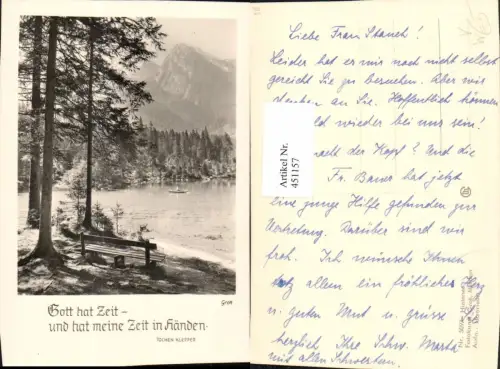 Gott hat Zeit –
und hat meine Zeit in Händen.
JOCHEN KLEPPER
Liebe Frau Stauch!
Leider hat es mir noch nicht selbst
gereicht Sie zu besuchen. Aber wir
denken an Sie. Hoffentlich können
ld wieder bei uns sein!
der Kopf? Und die
Fr. Bauer hat jetzt
eine junge Hilfe gefunden zur
Vertretung. Darüber sind wir
froh. Ich wünsche Ihnen
trotz allem ein fröhliches Herz
u. guten Mut u. grüsse
herzlich Ihre Schw. Marta
mit allen Schwestern.
Artikel Nr.
451157